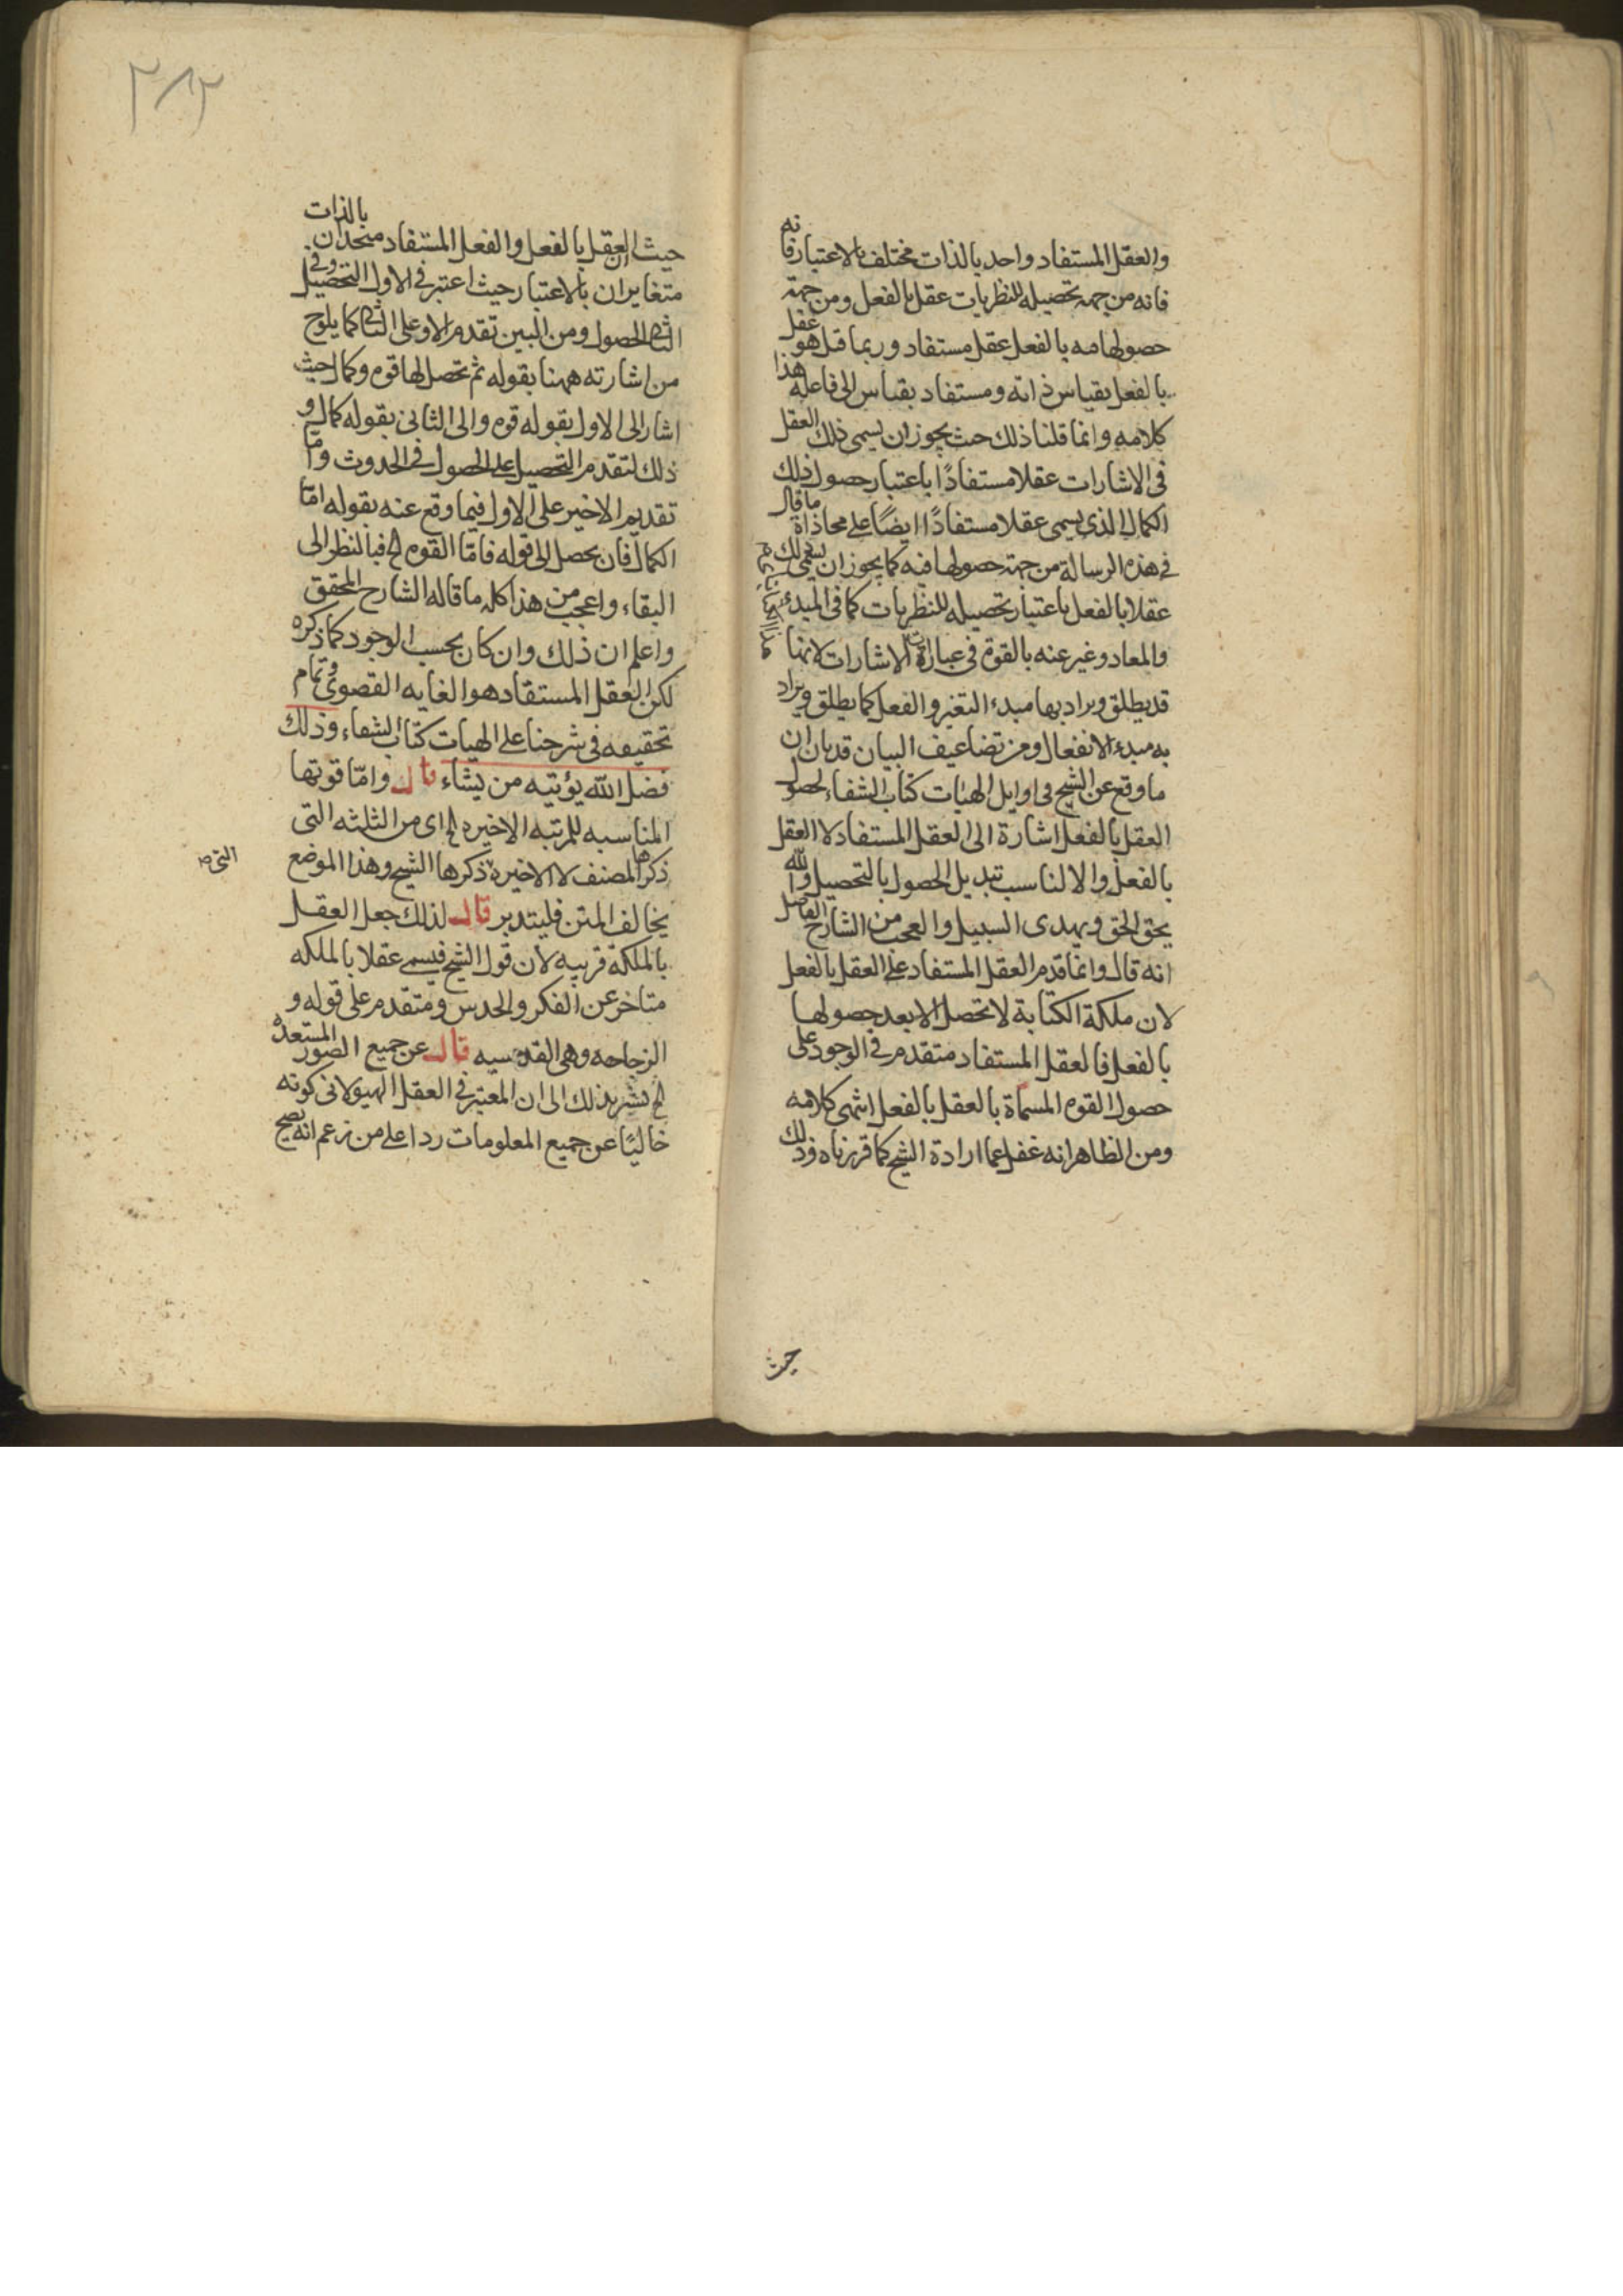 والعقل المستفاد واحد بالذات مختلف بالاعتبار فانه
فانه من جهه تحصيله للنظريات عقل بالفعل ومن جهة
حصولها منه بالفعل عقل مستفاد وربما قيل هو عقل
بالفعل بقياس ذاته ومستفاد بقياس الى فاعله هذا
كلامه وانما قلنا ذلك حيث يجوز ان يسمى ذلك العقل
فى الاشارات عقلا مستفادًا باعتبار حصول ذلك
الكمال الذى يسمى عقلا مستفادًا ايضًا على محاذاة ما قال
فى هذه الرسالة من جهة حصولها فيه كما يجوز ان يسمى ذلك
عقلا بالفعل باعتبار تحصيله للنظريات كما فى المبدء
والمعاد وغير عنه بالقوة فى عبارة الاشارات لانها
قد يطلق ويراد بها مبدء التغير والفعل كما يطلق ويراد
به مبدء الانفعال ومن تضاعيف البيان قد بان ان
ما وقع عن الشيخ فى اوايل الهيات كتاب الشفاء لحصول
العقل بالفعل اشارة الى العقل المستفاد لا العقل
بالفعل والا لناسب تبديل الحصول بالتحصيل والله
يحق الحق ويهدى السبيل والعجب من الشارح الفاضل
انه قال وانما قدم العقل المستفاد على العقل بالفعل
لان ملكة الكتابة لا تحصل الا بعد حصولها
بالفعل فالعقل المستفاد متقدم فى الوجود على
حصول القوه المسماة بالعقل بالفعل انتهى كلامه
ومن الظاهر انه غفل عما ارادة الشيخ كما قررناه وذلك
حيث
٢٨٢
حيث ان العقل بالفعل والفعل المستفاد متحدان بالذات
متغايران بالاعتبار حيث اعتبر فى الاول التحصيل وفى
الثانى الحصول ومن البين تقدم الاو على الثانى كما يلوح
من اشارته ههنا بقوله ثم تحصل لها قوه وكمال حيث
اشار الى الاول بقوله قوه والى الثانى بقوله كمال و
ذلك لتقدم التحصيل على الحصول فى الحدوث واما
تقديم الاخير على الاول فيما وقع عنه بقوله امّا
الكمال فان يحصل الى قوله فامّا القوه الخ فبالنظر الى
البقاء واعجب من هذا كله ما قاله الشارح المحقق
واعلم ان ذلك وان كان بحسب الوجود كما ذكره
لكن العقل المستفاد هو الغايه القصوى وتمام
تحقيقه فى شرحنا على الهيات كتاب الشفاء وذلك
فضل الله يؤتيه من يشاء قال وامّا قوتها
المناسبه للمرتبه الاخيره الخ اى من الثلثه التى
ذكرها المصنف لا الاخيره ذكرها الشيخ وهذا الموضع
التى
يخالف المتن فليتدبر قال لذلك جعل العقل
بالملكة قريبه لان قول الشيخ فيسمى عقلا بالملكه
متاخر عن الفكر والحدس ومتقدم على قوله و
الزجاجه وهى القدسيه قال عن جميع الصور المستعده
الخ يشير بذلك الى ان المعتبر فى العقل الهيولانى كونه
خاليًا عن جميع المعلومات ردا على من زعم انه يصح